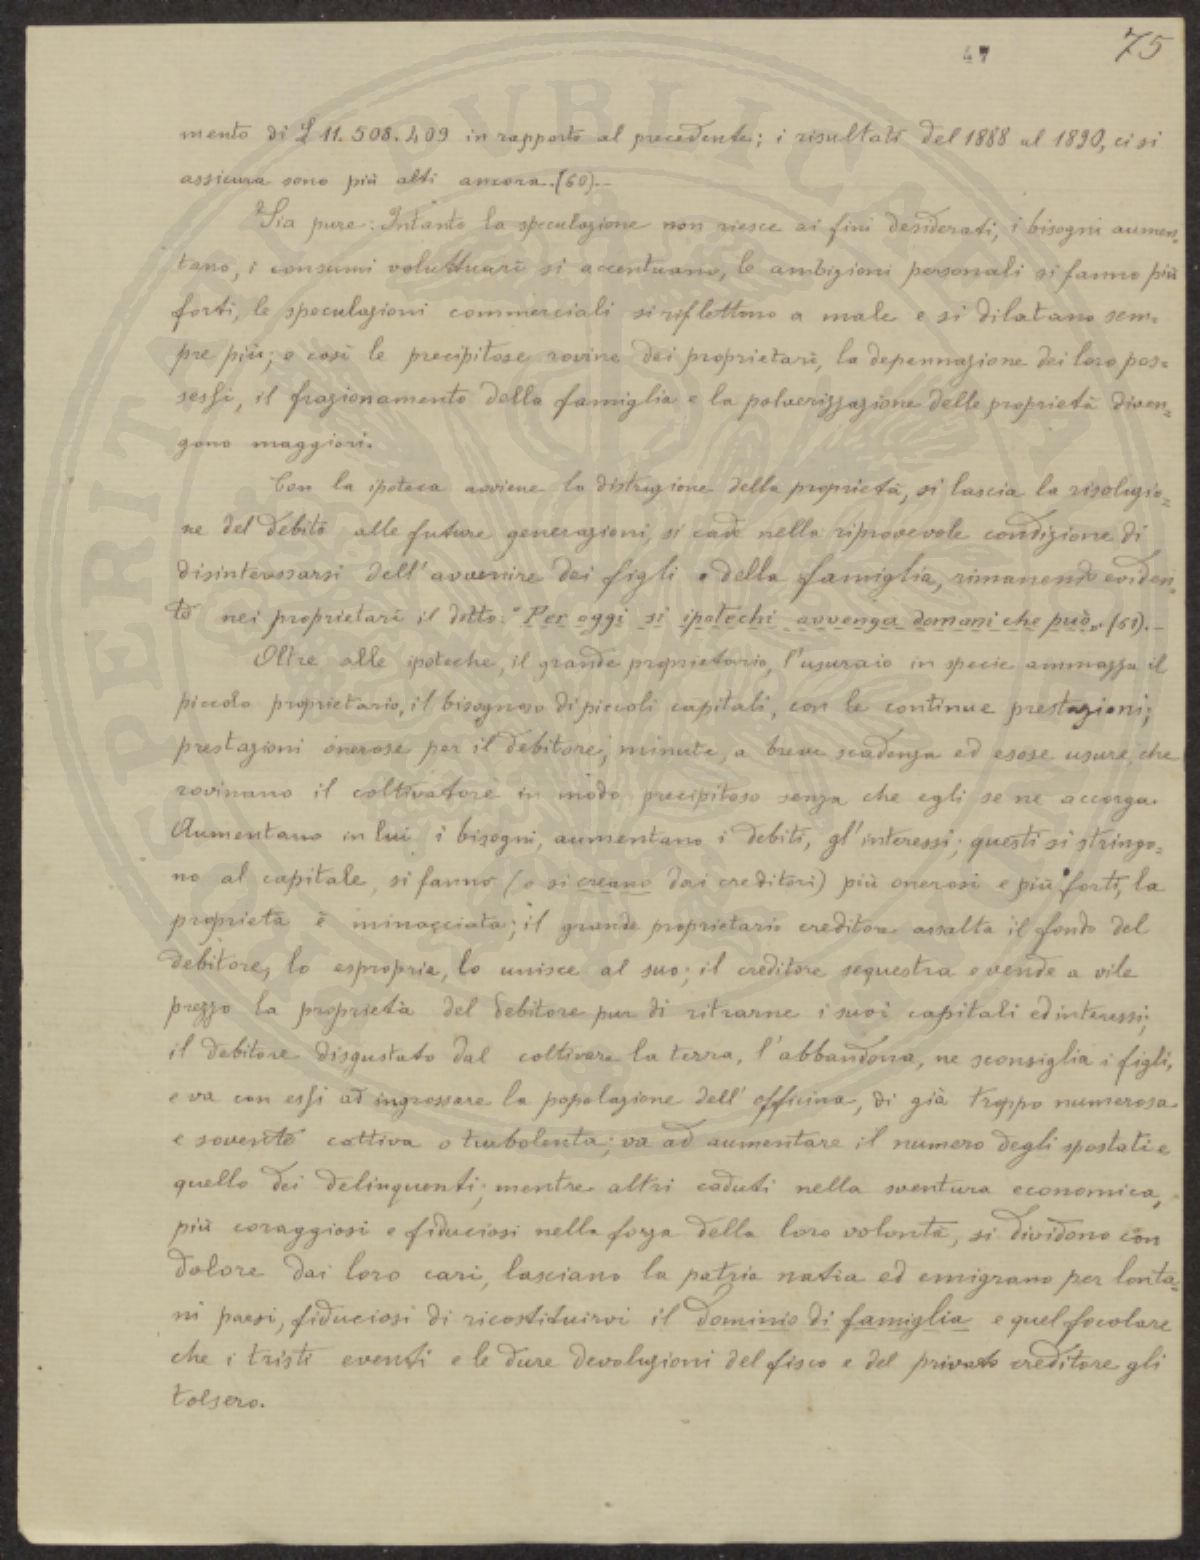 47
75
mento di £ 11.508.409 in rapporto al precedente; i risultati del 1888 al 1890, ci si
assicura sono più alti ancora.(60).—
Sia pure: Intanto la speculazione non riesce ai fini desiderati, i bisogni aumen=
tano, i consumi voluttuarî si accentuano, le ambizioni personali si fanno più
forti, le speculazioni commerciali si riflettono a male e si dilatano sem=
pre più; e così le precipitose rovine dei proprietarî, la depennazione dei loro pos=
sessi, il frazionamento della famiglia e la polverizzazione delle proprietà diven=
gono maggiori.
Con la ipoteca avviene la distruzione della proprietà, si lascia la risoluzio=
ne del debito alle future generazioni, si cade nella riprovevole condizione di
disinteressarsi dell'avvenire dei figli e della famiglia, rimanendo eviden=
te nei proprietarî il detto: "Per oggi si ipotechi avvenga domani che può„.(61).—
Oltre alle ipoteche, il grande proprietario, l'usuraio in specie ammazza il
piccolo proprietario, il bisognoso di piccoli capitali, con le continue prestazioni;
prestazioni onerose per il debitore; minute, a breve scadenza ed esose usure, che
rovinano il coltivatore in modo precipitoso senza che egli se ne accorga.
Aumentano in lui i bisogni, aumentano i debiti, gl'interessi; questi si stringo=
no al capitale, si fanno (o si creano dai creditori) più onerosi e più forti, la
proprietà è minacciata; il grande proprietario creditore assalta il fondo del
debitore, lo espropria, lo unisce al suo; il creditore sequestra e vende a vile
prezzo la proprietà del debitore pur di ritrarne i suoi capitali ed interessi;
il debitore disgustato dal coltivare la terra, l'abbandona, ne sconsiglia i figli,
e va con essi ad ingrossare la popolazione dell'officina, di già troppo numerosa
e sovente cattiva o turbolenta; va ad aumentare il numero degli spostati e
quello dei delinquenti; mentre altri caduti nella sventura economica,
più coraggiosi e fiduciosi nella forza della loro volontà, si dividono con
dolore dai loro cari, lasciano la patria natia ed emigrano per lonta=
ni paesi, fiduciosi di ricostituirvi il dominio di famiglia e quel focolare
che i tristi eventi e le dure devoluzioni del fisco e del privato creditore gli
tolsero.